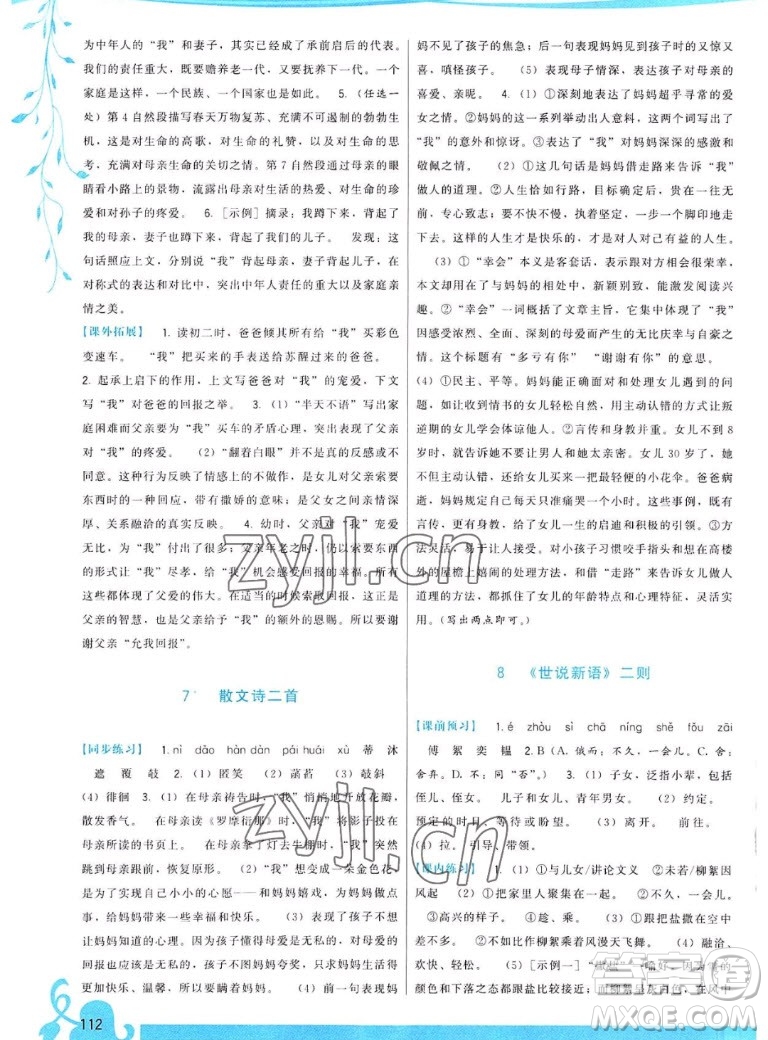 为中年人的“我”和妻子，其实已经成了承前启后的代表。
我们的责任重大，既要赡养老一代，又要扶持下一代。一个
家庭是这样，一个民族、一个国家也是这样。 5.（任选一
处）第 4 自然段描写春天万物复苏、充满不可遏制的勃勃生
机，这是对生命的高歌，对生命的礼赞，以抒发对生命的思
考，充满对母亲生命的关切之情。第 7 自然段用母亲的眼
睛看小路上的景物，流露出母亲对生活的热爱、对生命的珍
爱和对孙子的疼爱。 6.［示例］摘录：我蹲下来，背起了
我的母亲，妻子也蹲下来，背起了我们的儿子。 发现：这
句话照应上文，分别说“我”背母亲、妻子背儿子，在工整的
对称式的表达和对比中，突出中年人责任的重大以及家庭亲
情之美。
【课外拓展】 1. 读初二时，爸爸倾其所有给“我”买彩色
变速车。 “我”把买来的手表送给苏醒过来的爸爸。
2. 起承上启下的作用，上文写爸爸对“我”的宠爱，下文
写“我”对爸爸的回报之举。 3.（1）“半天不语”写出家
庭困难而又想为“我”买车的矛盾心理，突出父亲对“我”
的爱。 （2）“翻着白眼”并不是真的反感，不是不满或不
同意。这种行为反映了情感上的不做作，是女儿对父亲索要
东西时的一种回应，带有撒娇的意味；是父女之间亲情深
厚、关系融洽的真实反映。 4. 幼时，父亲对“我”宠爱
无比，为“我”付出了很多很多；父亲年老之时，仍以索要东西
的形式让“我”尽孝，给“我”机会感受回报的幸福。所有
这些都体现了父爱的伟大。在适当的时候索取回报，这正是
父亲的智慧，也是父亲给“我”的额外的恩赐。所以要谢
谢父亲“允我回报”。
7 散文诗二首
【同步练习】 1. nì dǎo hàn dàn pái huái xù 蒂 沐
遮 覆 敧 2.（1）匿笑 （2）菡萏 （3）敧斜
（4）徘徊 3.（1）在母亲祷告时，“我”悄悄地开放花瓣，
散发香气。 在母亲读《罗摩衍那》时，“我”将影子投在母
亲所读的书页上。 在母亲拿了灯去牛棚时，“我”突然
跳到母亲跟前，恢复原形。 （2）“我”想变成一朵金色花是
为了实现自己小小的心愿——和妈妈嬉戏，为妈妈做点
事，给妈妈送上一份温馨和快乐。 （3）一方面，孩子不想
让妈妈知道他的心意。因为孩子懂得母爱是无私的，对母爱的
回报也应是无私的，孩子不图妈妈夸奖，只求妈妈生活得
快乐、温馨，所以没有说出来。 （4）前一句表现妈
妈不见了孩子的焦急；后一句表现妈妈见到孩子时的又惊又
喜，嗔怪孩子。 （5）表现母子情深，表达孩子对母亲的
喜爱、亲昵。 4.（1）①深刻地表达了妈妈超乎寻常的爱
女之情。②妈妈的举动出人意料，这两个词语突出表现
了“我”的意外和惊讶。③表达了对妈妈深深的感激和
敬佩之情。 （2）①这几句话是妈妈借走路来告诉“我”
做人的道理。②人生恰如行路，目标确定后，贵在一往无
前，专心致志；要不怕不慢，坚定坚韧，一步一个脚印地走
下去。这样的人生才是快乐的，才是有价值、有追求的人生。
（3）①“幸会”本义是客套话，表示同别人相会很荣幸，
本文却用在了与妈妈的相处中，新颖别致，能激发阅读兴
趣。②“幸会”一词体现了文章主旨，它集中体现了“我”
因感受浓烈、全面、深刻的母爱而产生的无比庆幸与感激。
这个标题有“多亏有你”“谢谢有你”的意思。
（4）①民主、平等。妈妈能体会和处理女儿遇到的问
题，如让收到情书的女儿轻松自然，用主动认错的方式让叛
逆期的女儿学会体谅他人。②言传和身教并重。女儿不到 8
岁时，就告诉她不要迁就男人和她太亲热。女儿 30 岁了，她不
但主动认错，还悄悄送了女儿一把轻松的小花伞。爸爸病
逝后，妈妈坚持每天只准自己痛哭一次。这些事例，既有
言传，更有身教，给了女儿一生的启迪和积极的引领。③方
法灵活，易于让人接受。对小孩子习惯咬手指头和想在高楼
外的屋檐上嬉闹的处理方法，和借“走路”来告诉女儿做人
道理的方法，都体现了女儿的年龄特点和心理特征，灵活
实用。（写出两点即可。）
8 《世说新语》二则
【课前预习】 1. é zhòu sì chā níng shě fǒu zāi
傅 絮 奕 韫 2. B（A. 俄而：不久，一会儿。C. 舍：
舍弃。D. 不：同“否”。） 3.（1）子女，泛指小辈，包括
侄儿、侄女。 儿子和女儿、青年男女。 （2）约定。
预定的时间、等待或盼望。 （3）离开。 前往。
（4）拉。 引导、带领。
【课内练习】 1.（1）①与儿女/讲论文义 ②未若/柳絮因
风起 （2）①把家里人聚集在一起。 ②不久，一会儿。
③高兴的样子。 ④趁、乘。 （3）①跟把盐撒在空中
差不多。 ②不如比作柳絮乘着风漫天飞舞。 （4）融洽、
欢快、轻松。 （5）［示例一］
颜色和下雪样态比较接近；而柳絮呈灰白色，在风中
112
zyjl.cn
zyjl.cn
MXQE.COM